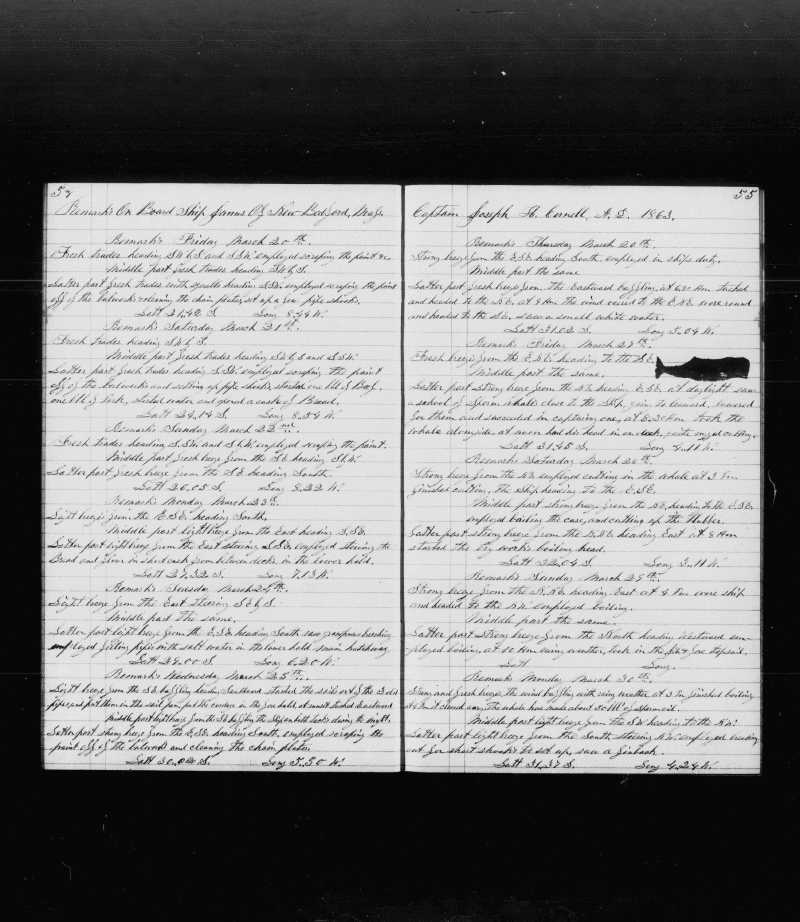 52
Remarks On Board Ship Janus Of New Bedford, Mass.
Remarks Friday March 20th.
Fresh trades heading S W b S and S S W. employed scraping the paint &c.
Middle part fresh trades heading S W b S.
Latter part fresh trades with squalls heading S S W. employed scraping the paint
off of the bulwarks & cleaning the chain plates, set up a few pipe shooks.
Latt 21,42 S. Long 8,49 W.
Remarks Saturday March 21st.
Fresh trades heading S W b S.
Middle part fresh trades heading S W b S and S S W.
Latter part fresh trades heading S S W. employed scraping the paint
off of the bulwarks and setting up pipe shooks, started one bbl of Beef,
one bbl of Pork, started water and opened a cask of Bread.
Latt 24,14 S. Long 8,54 W.
Remarks Sunday March 22nd.
Fresh trades heading S. S W. and S b W. employed scraping the paint.
Middle part fresh breeze from the S E heading S b W.
Latter part fresh breeze from the S E heading South.
Latt 26,05 S. Long 8,22 W.
Remarks Monday March 23rd.
Light breeze from the E. S E. heading South.
Middle part light breeze from the East heading S. S E.
Latter part light breeze from the East steering S S E. employed stowing the
Bread and flour in short cask from between decks in the lower hold.
Latt 27,32 S. Long 7,13 W.
Remarks Tuesday March 24th.
Light breeze from the East steering S E b S.
Middle part the same.
Latter part light breeze from the E. S E heading South saw grampuses breaching
employed filling pipes with salt water in the lower hold main hatchway
Latt 29,00 S. Long 6,20 W.
Remarks Wednesday March 25th.
Light breeze from the S E baffling heading Southward started the soil out of the 3 old
pipes and put them in the sail pen, put the cordage in the fore hold, at sunset tacked Eastward
Middle part light breeze from the S E baffling the ship on both tacks during the night.
Latter part strong breeze from the E. S E. heading South employed scraping the
paint off of the bulwarks and cleaning the chain plates
Latt 30,02 S. Long 5,50 W.
53
Captain Joseph H. Cornell, A. D. 1863,
Remarks Thursday March 26th.
Strong breeze from the E. S E heading South, employed in ships duty.
Middle part the same
Latter part fresh breeze from the Eastward baffling, at 6,30 Am tacked
and headed to the N E. at 9 Am the wind veered to the E. N E. wore round
and headed to the S E. saw a small white water.
Latt 31,02 S. Long 5,09 W.
Remarks Friday March 27th.
Fresh breeze from the E. S E. heading to the S E.
Middle part the same.
Latter part strong breeze from the N E heading E. S E. at daylight saw
a school of Sperm whales close to the ship, going to leeward, lowered
for them and succeeded in capturing one, at 8,30 Am took the
whale alongside, at noon had his head in on deck, quite rugged cutting.
Latt 31,45 S. Long 4,11 W.
Remarks Saturday March 28th.
Strong breeze from the N E employed cutting in the whale at 3 Pm
finished cutting, the ship heading to the E. S E.
Middle part strong breeze from the N E, heading to the E. S E.
employed bailing the case, and cutting up the blubber.
Latter part strong breeze from the N. N E heading East at 8 Am
started the try works boiling head.
Latt 32,04 S. Long 3,11 W.
Remarks Sunday March 29th.
Strong breeze from the N. N E. heading East at 4 Pm wore ship
and headed to the N W. employed boiling.
Middle part the same.
Latter part strong breeze from the North heading Westward em-
ployed boiling, at 10 Am rainy weather, took in the jib & fore topsail.
Latt Long.
Remarks Monday March 30th.
Strong and fresh breeze, the wind baffling with rainy weather, at 3 Pm finished boiling
at 4 Pm it cleared away, the whale has made about 30 bbl of Sperm oil.
Middle part light breeze from the S W heading to the N W.
Latter part light breeze from the South steering N W. employed breaking
out for short shooks to set up, saw a finback.
Latt 31,37 S. Long 4,24 W.